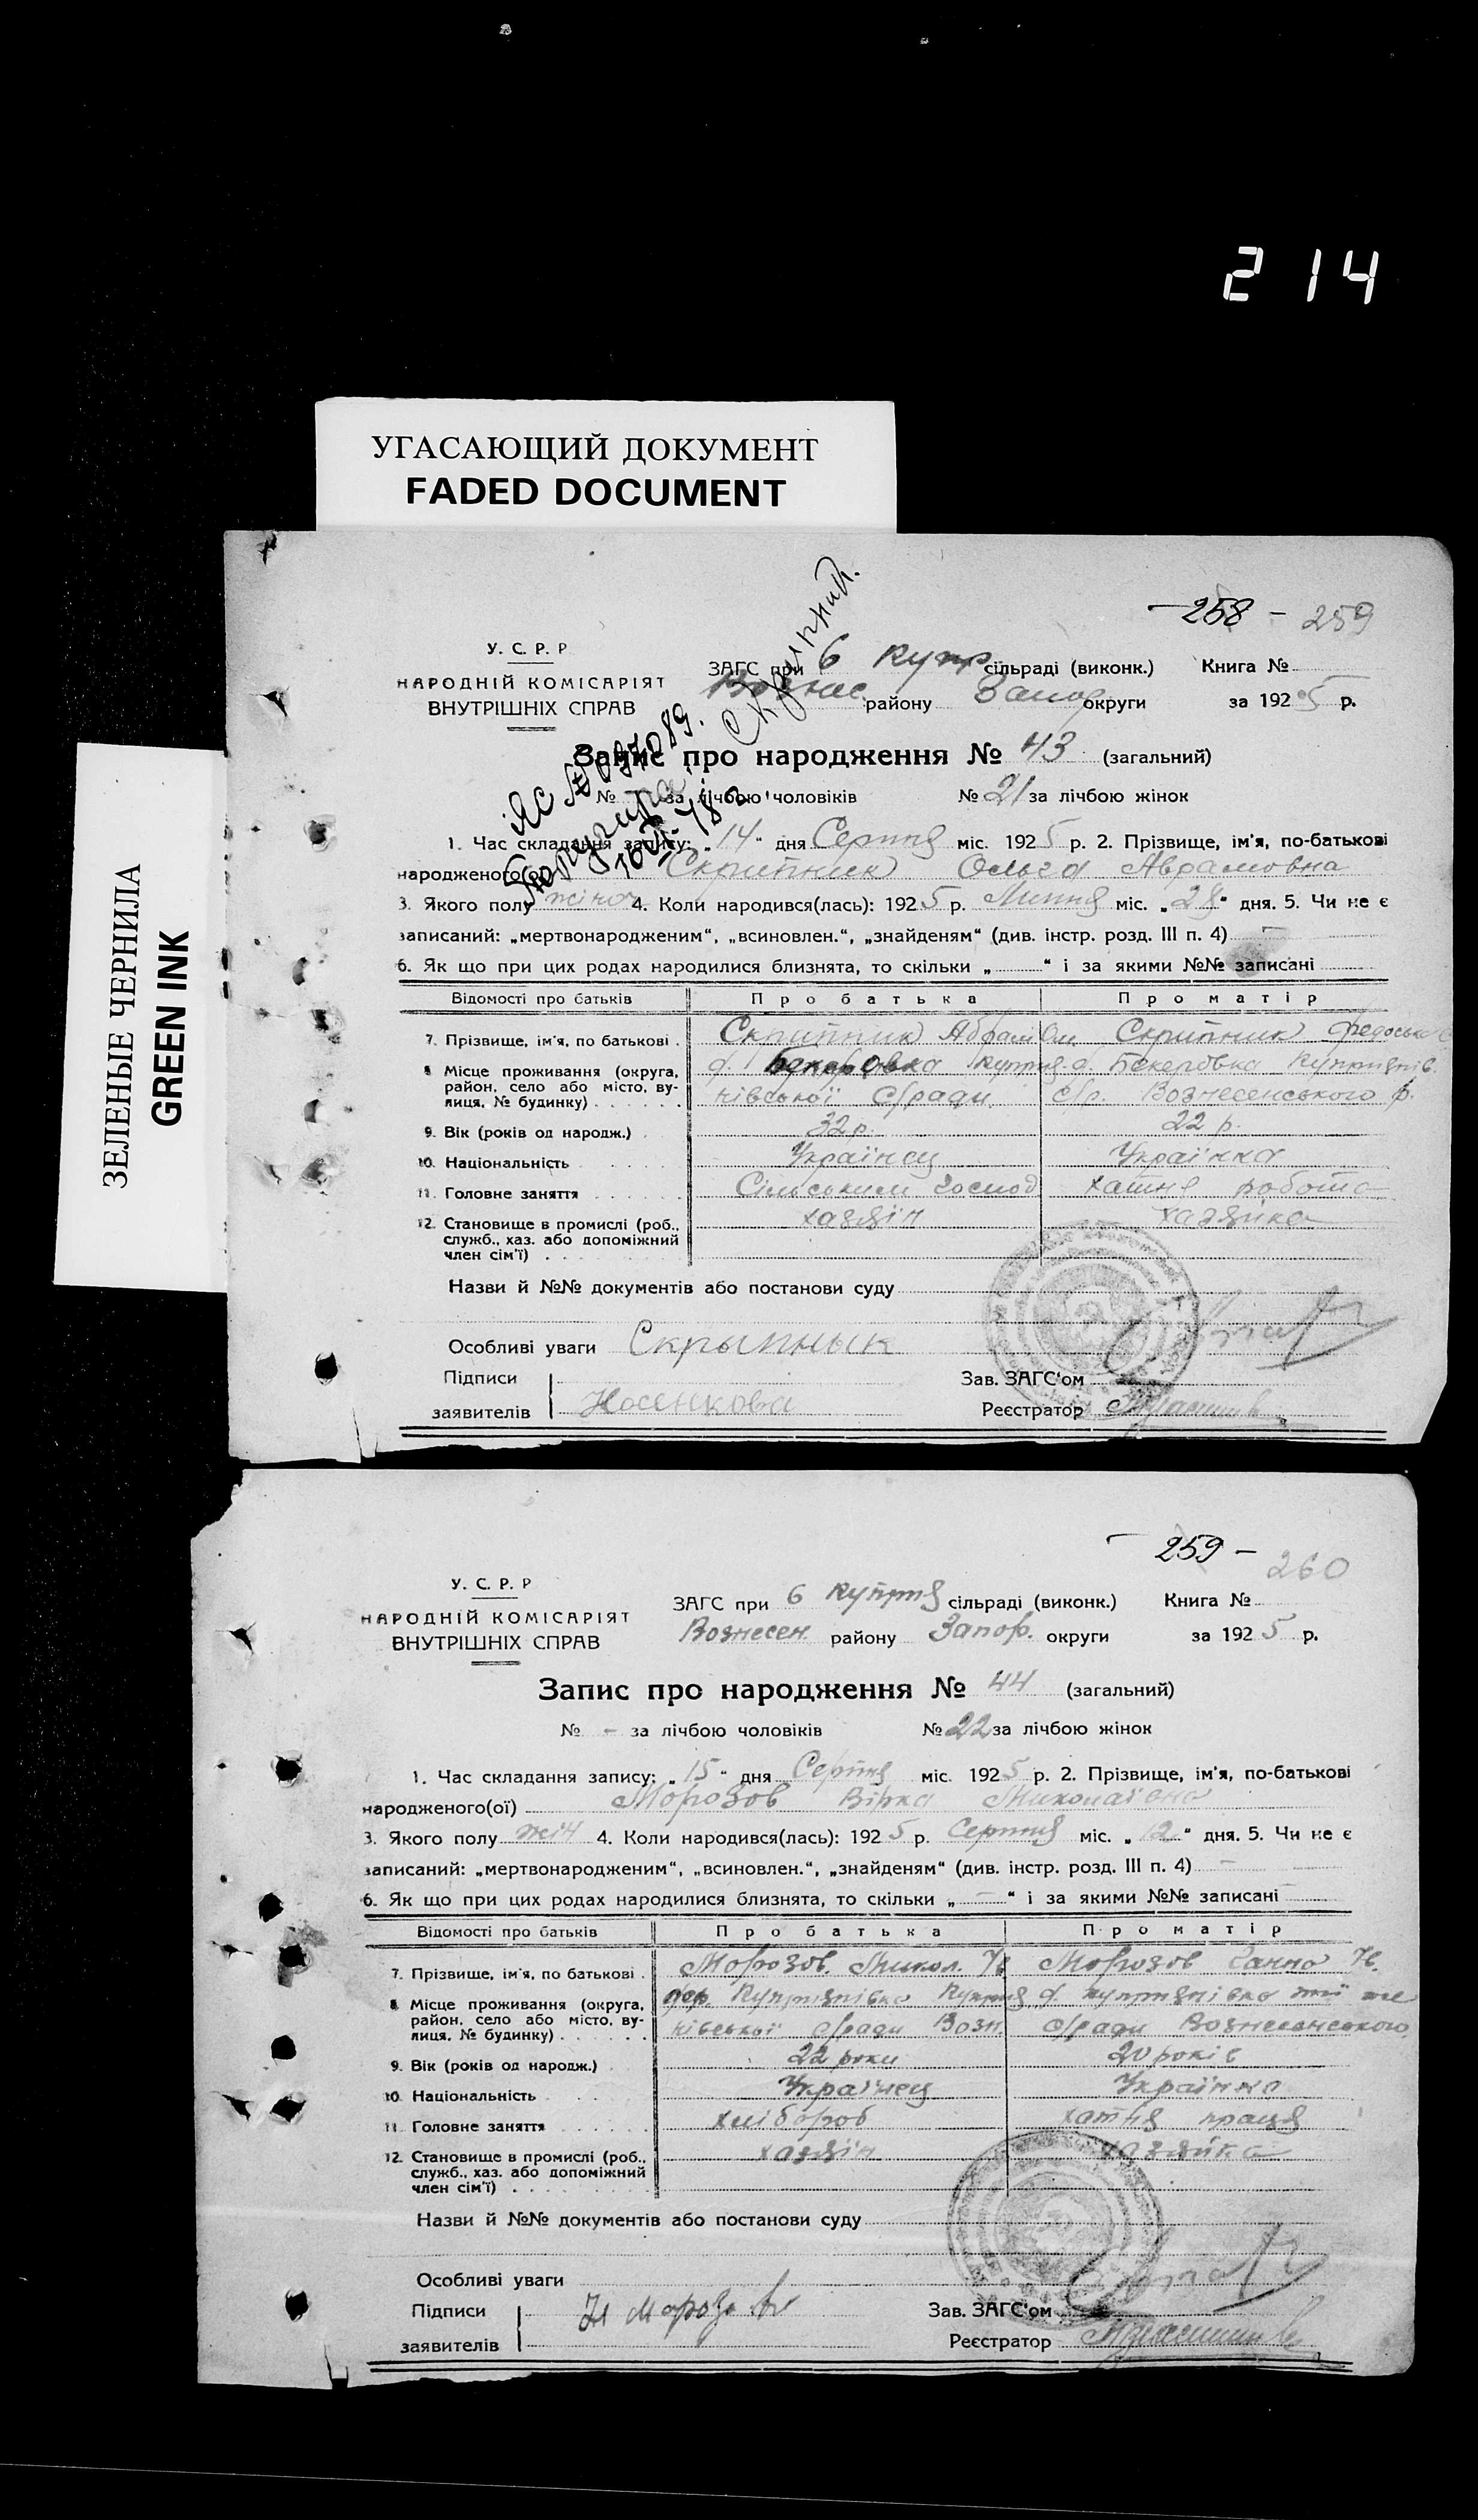 2 14
УГАСАЮЩИЙ ДОКУМЕНТ
FADED DOCUMENT
ЗЕЛЕНЫЕ ЧЕРНИЛА
GREEN INK
258 - 259
У. С. Р. Р
НАРОДНІЙ КОМІСАРІЯТ
ВНУТРІШНІХ СПРАВ
ЗАГС при 6 Купр сільраді (виконк.) Книга №
Вознес району Запор округи за 1925 р.
Запис про народження № 43 (загальний)
№ за лічбою чоловіків № 21 за лічбою жінок
1. Час складання запису: „14“ дня Серпня міс. 1925 р. 2. Прізвище, ім'я, по-батькові
народженого(ої) Скрипник Ольга Аврамовна
3. Якого полу жіноч 4. Коли народився(лась): 1925 р. Липня міс. „28“ дня. 5. Чи не є
записаний: „мертвонародженим“, „всиновлен.“, „знайденям“ (див. інстр. розд. III п. 4) —
6. Як що при цих родах народилися близнята, то скільки „ “ і за якими №№ записані
Відомості про батьків Про батька Про матір
7. Прізвище, ім'я, по батькові Скрипник Абрам Скрипник Федоська
8 Місце проживання (округа, район, село або місто, вулиця, № будинку) д. Бекеровка Купря д. Бекеровка Купряпнів.
ківської с/ради с/р. Вознесенського р.
9. Вік (років од народж.) 32 р. 22 р.
10. Національність Українец Українка
11. Головне заняття Сільським господ хатня робота
12. Становище в промислі (роб., служб., хаз. або допоміжний член сім'ї) хазяїн хазяйка
Назви й №№ документів або постанови суду
Особливі уваги Скрыпнык
Підписи
заявителів Носенкова
Зав. ЗАГС'ом
Реєстратор
259 - 260
У. С. Р. Р
НАРОДНІЙ КОМІСАРІЯТ
ВНУТРІШНІХ СПРАВ
ЗАГС при 6 Купря сільраді (виконк.) Книга №
Вознесен. району Запор. округи за 1925 р.
Запис про народження № 44 (загальний)
№ – за лічбою чоловіків № 22 за лічбою жінок
1. Час складання запису: „15“ дня Серпня міс. 1925 р. 2. Прізвище, ім'я, по-батькові
народженого(ої) Морозов Вірка Миколаївна
3. Якого полу жін 4. Коли народився(лась): 1925 р. Серпня міс. „12“ дня. 5. Чи не є
записаний: „мертвонародженим“, „всиновлен.“, „знайденям“ (див. інстр. розд. III п. 4) —
6. Як що при цих родах народилися близнята, то скільки „—“ і за якими №№ записані
Відомості про батьків Про батька Про матір
7. Прізвище, ім'я, по батькові Морозов. Микол. Морозов Ганна
8 Місце проживання (округа, район, село або місто, вулиця, № будинку) Купряпнівка Купря д. Купряпнівка тії же
ківської с/ради Возн. с/ради Вознесенського
9. Вік (років од народж.) 22 роки 20 років
10. Національність Українец Українка
11. Головне заняття хлібороб хатня праця
12. Становище в промислі (роб., служб., хаз. або допоміжний член сім'ї) хазяїн хазяйка
Назви й №№ документів або постанови суду
Особливі уваги
Підписи Н Морозов
заявителів
Зав. ЗАГС'ом
Реєстратор